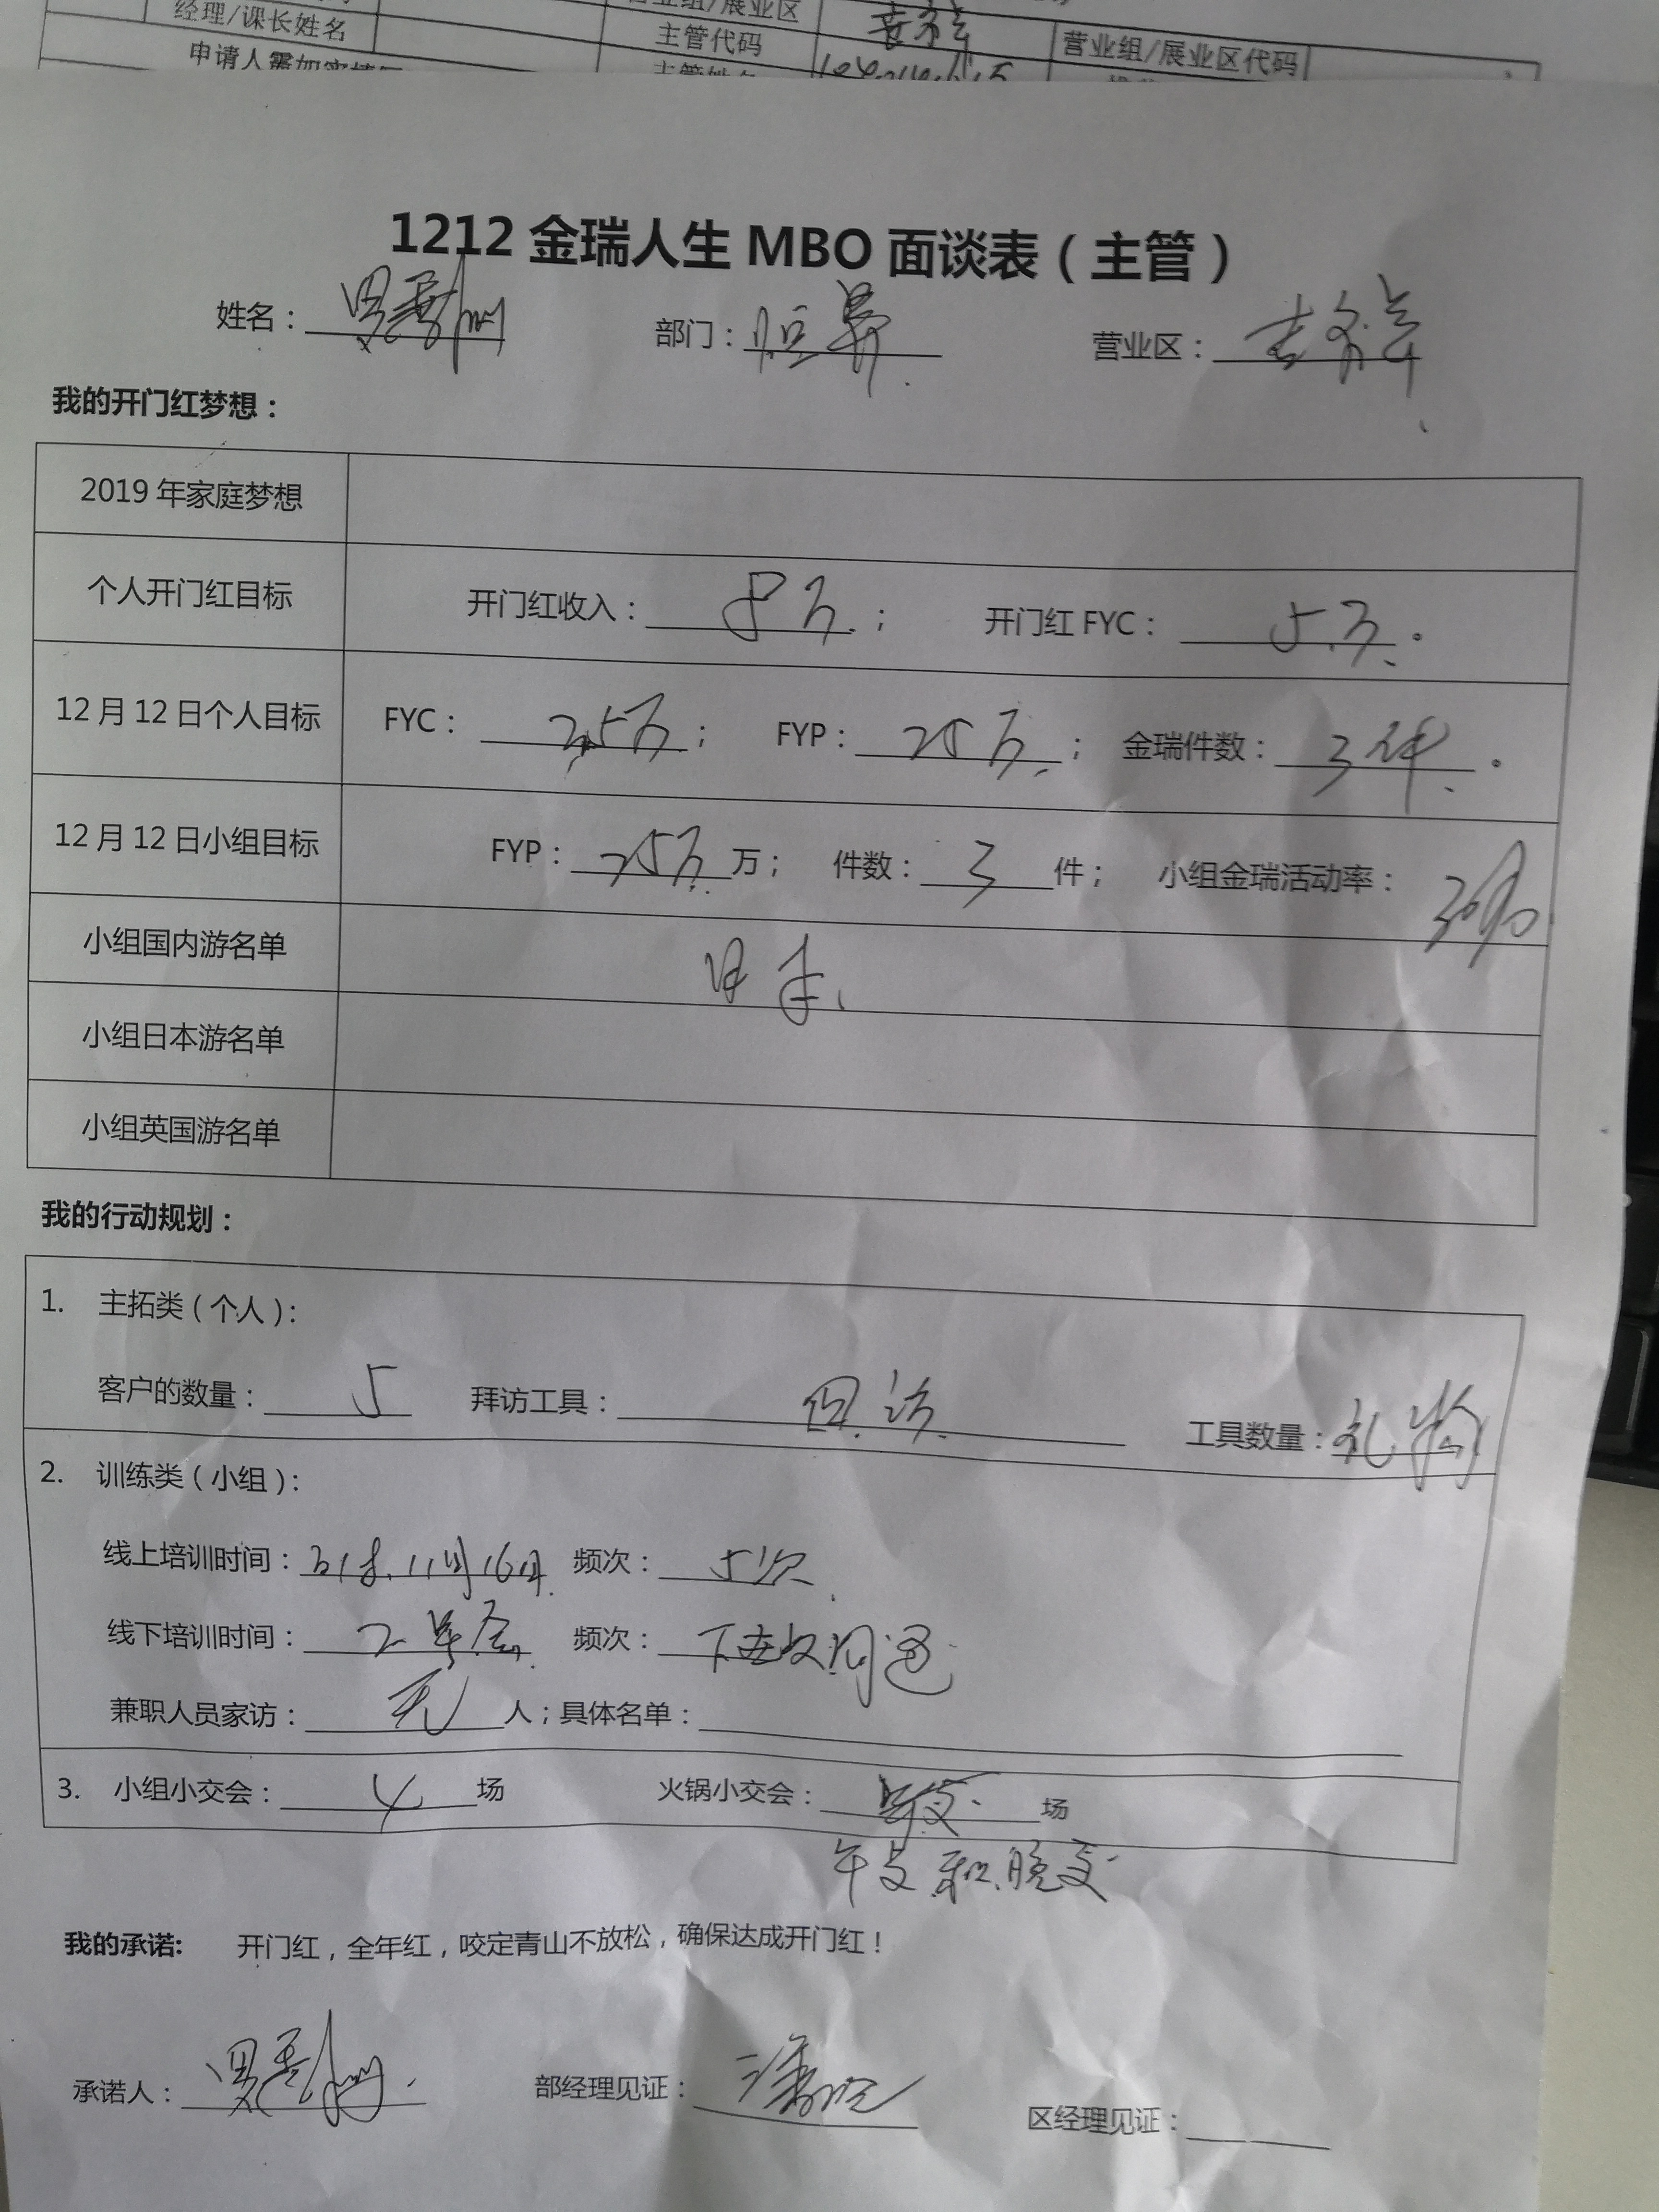 经理/课长姓名
主管代码
营业组/展业区代码
1212金瑞人生MBO面谈表(主管)
姓名: 部门:恒昇 营业区:
我的开门红梦想:
2019年家庭梦想
个人开门红目标 开门红收入:8万; 开门红FYC:5万。
12月12日个人目标 FYC:2.5万; FYP:25万; 金瑞件数:3件。
12月12日小组目标 FYP:25万万; 件数:3件; 小组金瑞活动率:
小组国内游名单
小组日本游名单
小组英国游名单
我的行动规划:
1. 主拓类(个人):
客户的数量:5 拜访工具:回访 工具数量:礼物
2. 训练类(小组):
线上培训时间: 11月16日 频次:5次
线下培训时间: 频次:
兼职人员家访:无人;具体名单:
3. 小组小交会:4场 火锅小交会: 场
午交和晚交
我的承诺: 开门红,全年红,咬定青山不放松,确保达成开门红!
承诺人: 部经理见证: 区经理见证: